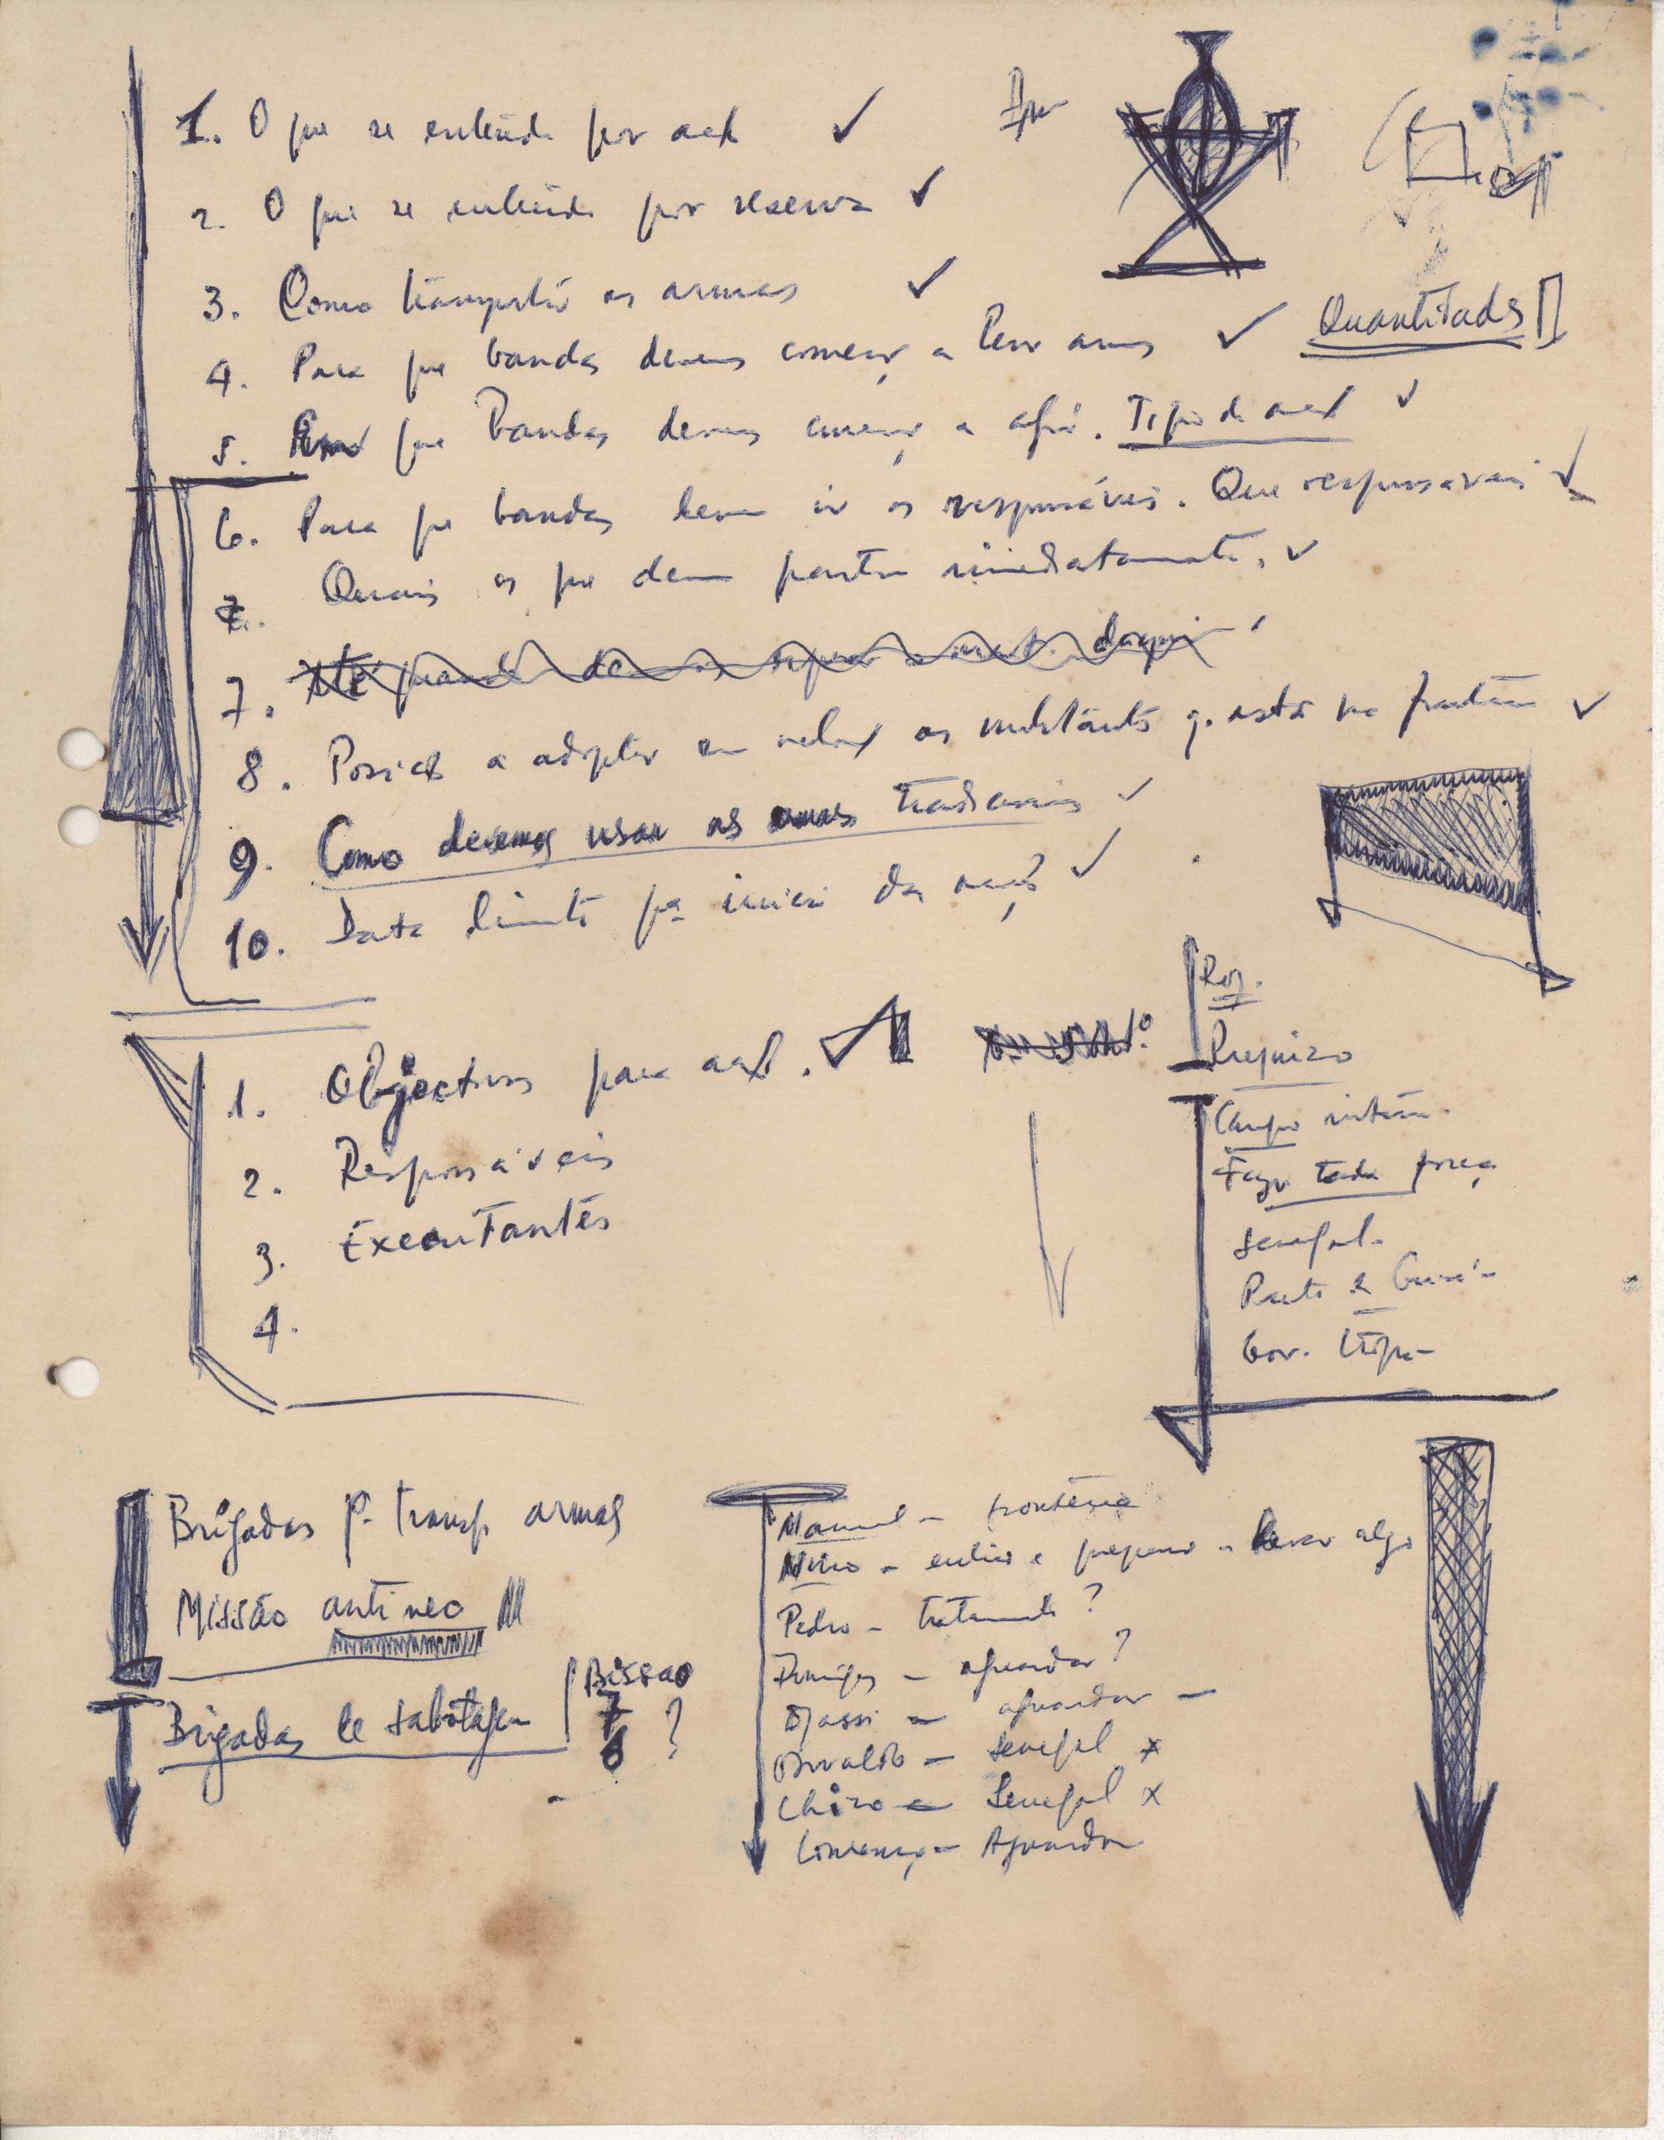 1. O que se entende por acç ✓
2. O que se entende por reserva ✓
3. Como transportar as armas ✓
4. Para que bandas devemos começar a levar armas ✓ Quantidades
5. Em que Bandas devemos começar a agir. Tipo de acç ✓
6. Para que bandas devem ir os responsáveis. Que responsáveis ✓
Quais os que devem partir imediatamente. ✓
7. daqui
8. Posição a adoptar em relaç os militantes q. estão na fronteira ✓
9. Como devemos usar as armas tradicionais ✓
10. Data limite pª início da acção ✓
1. Objectivos para acç.
2. Responsáveis
3. Executantes
4.
Campo intern.
Fazer toda força
Senegal.
Brigadas pª transp. armas
Missão antineo
Brigadas de sabotagem
Bissao
7
6 ?
Manuel - fronteira
Nino - e preparar - levar algo
Pedro - tratamento ?
Domingos - aguardar ?
Djassi - aguardar -
Osvaldo - Senegal x
Chico - Senegal x
Lourenço - Aguardar